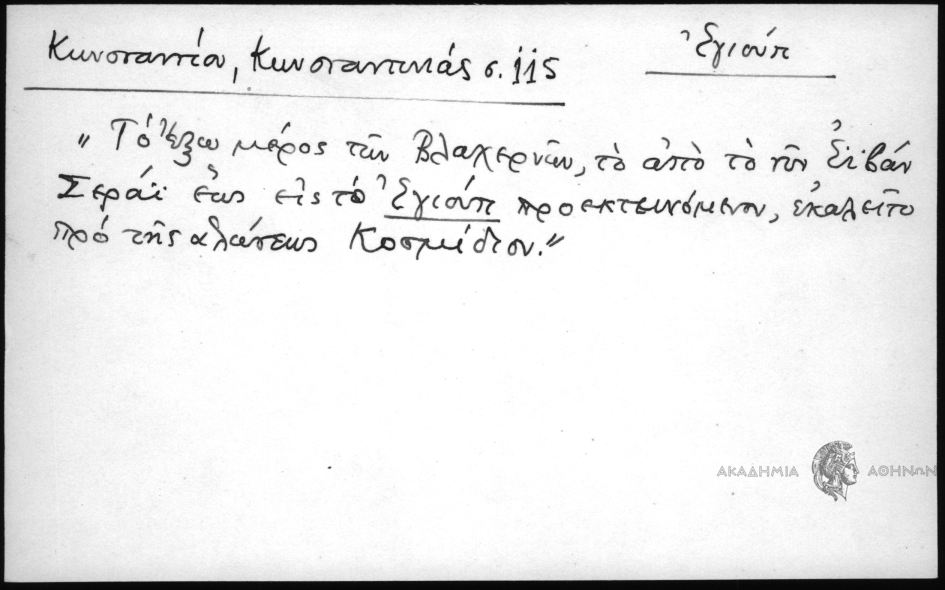 Κωνσταντίου, Κωνσταντινιάς σ. 115
Ἐγιούπ
"Τὸ ἔξω μέρος τῶν Βλαχερνῶν, τὸ ἀπὸ τὸ νῦν Ἐϊβάν
Σεράϊ ἕως εἰς τὸ Ἐγιούπ προεκτεινόμενον, ἐκαλεῖτο
πρό τῆς ἁλώσεως Κοσμίδιον."
ΑΚΑΔΗΜΙΑ ΑΘΗΝΩΝ